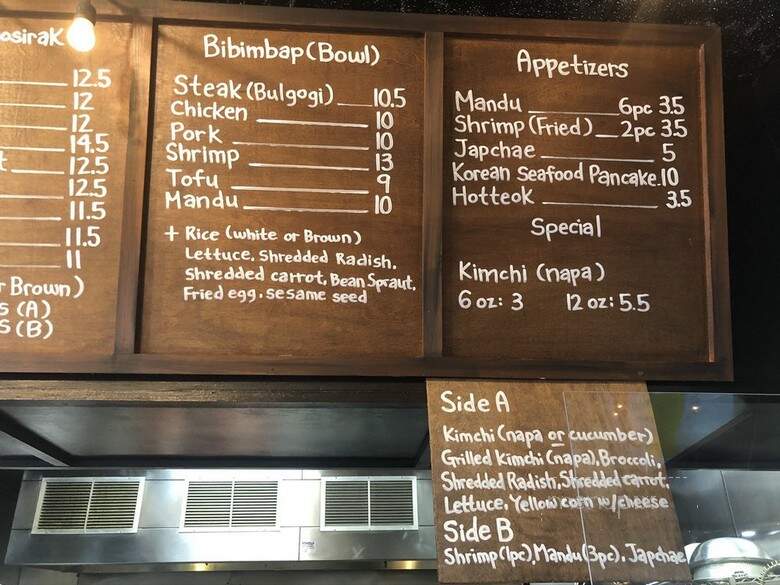 osirak
12.5
12
12
14.5
t 12.5
12.5
11.5
11.5
11
r Brown)
s (A)
s (B)
Bibimbap (Bowl)
Steak (Bulgogi) 10.5
Chicken 10
Pork 10
Shrimp 13
Tofu 9
Mandu 10
+ Rice (white or Brown)
Lettuce, Shredded Radish.
Shredded carrot, Bean Spraut,
Fried egg. sesame seed
Appetizers
Mandu 6pc 3.5
Shrimp (Fried) 2pc 3.5
Japchae 5
Korean Seafood Pancake. 10
Hotteok 3.5
Special
Kimchi (napa)
6 oz: 3 12 oz: 5.5
Side A
Kimchi (napa or cucumber)
Grilled Kimchi (napa), Broccoli,
Shredded Radish, Shredded carrot,
Lettuce, Yellow corn w/cheese
Side B
Shrimp (1pc), Mandu (3pc), Japchae